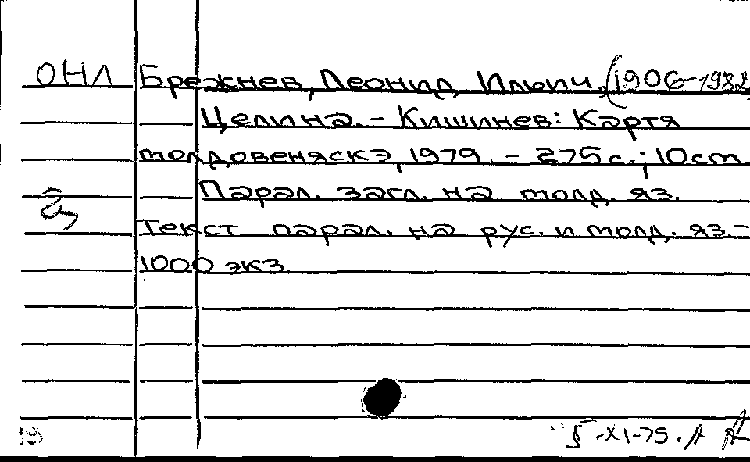 ОНЛ Брежнев, Леонид Ильич, (1906-1982
Целина. - Кишинев: Картя
молдовеняскэ, 1979. - 275 с.; 10 cm
Парал. загл. на молд. яз.
Текст парал. на рус. и молд. яз. -
1000 экз.
5-XI-75.